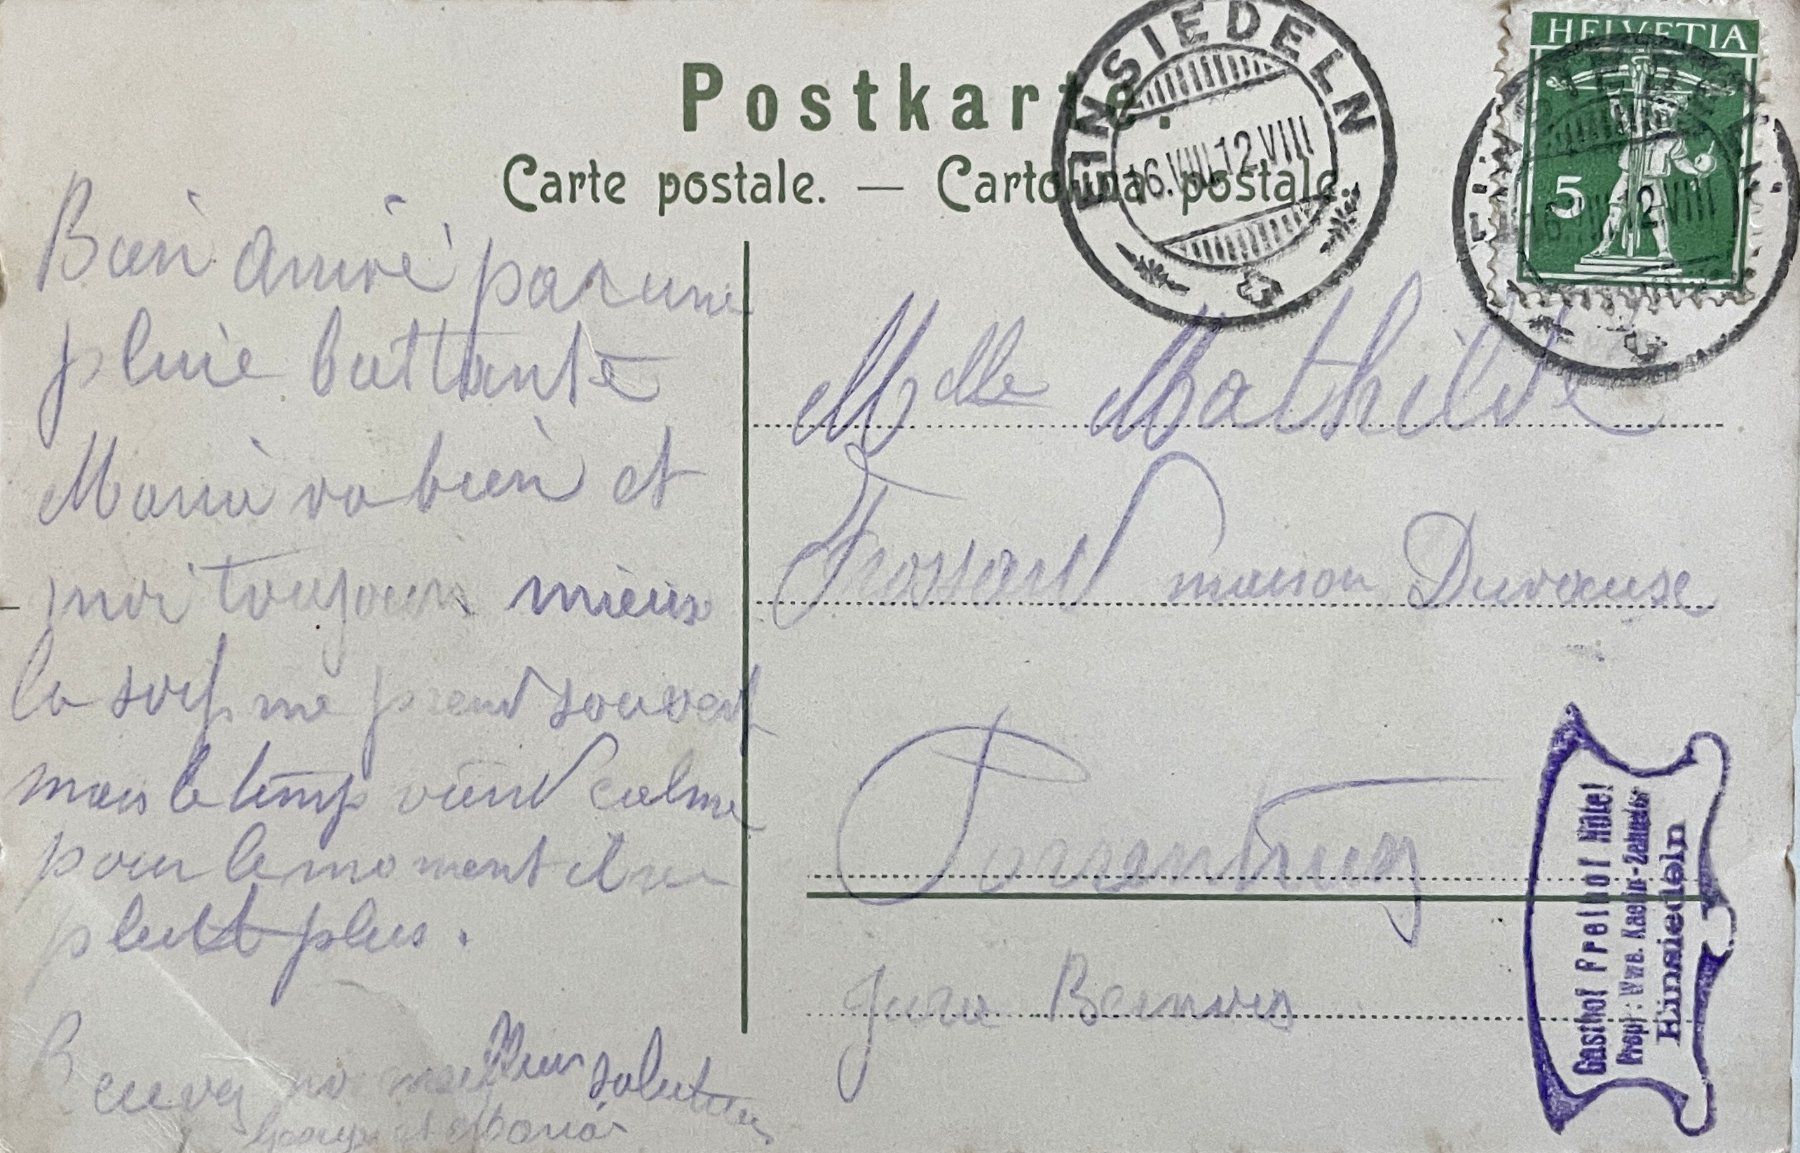 Postkarte.
Carte postale. — Cartolina postale.
EINSIEDELN
16.VIII.12.VIII
HELVETIA
5
Bien arrivé par une
pluie battante
Maria va bien et
moi toujours mieux
la soif me prend souvent
mais le temp vient calme
pour le moment il ne
pleut plus.
Recevez nos meilleur salutation
et Maria
Mdlle Mathilde
Frossard maison Duvause
Porrentruy
Jura Bernois
Gasthof Freihof Hôtel
Propr: Wwe. Kaelin-Zehnder
Einsiedeln